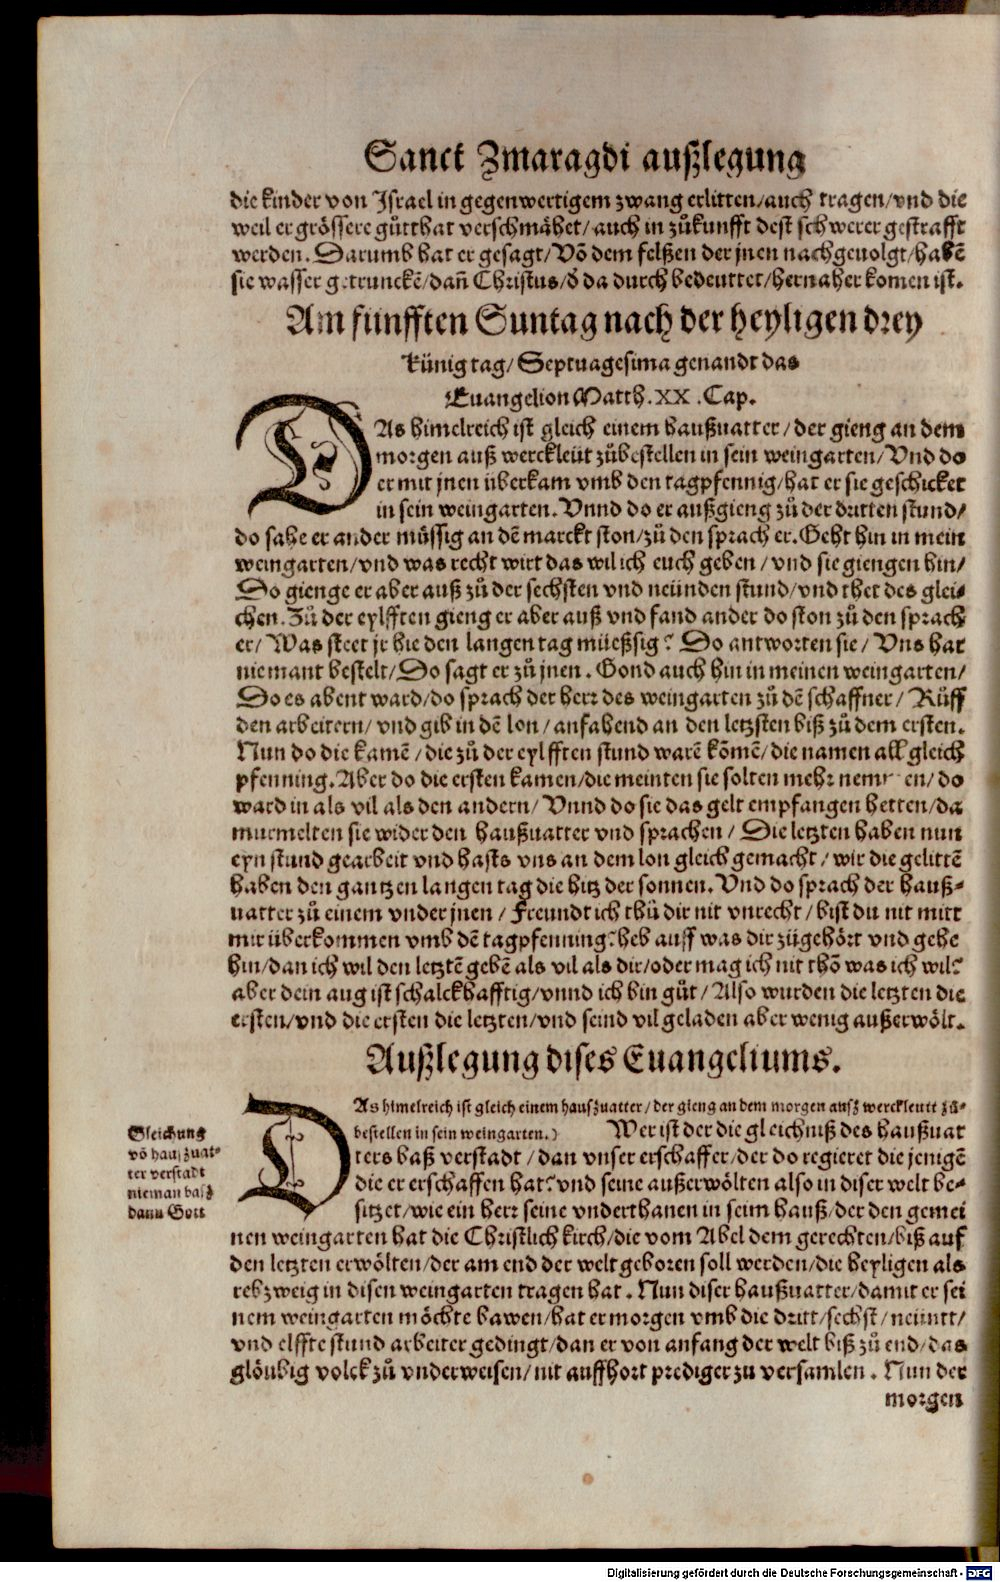 Sanct Zmaragdi außlegung
die kinder von Israel in gegenwertigem zwang erlitten/auch tragen/vnd die
weil er grössere gůtthat verschmähet/auch in zůkunfft dest schwerer gestrafft
werden. Darumb hat er gesagt/Võ dem felßen der jnen nachgeuolgt/habẽ
sie wasser getrunckẽ/dañ Christus/d̃ da durch bedeuttet/hernaher komen ist.
Am fünfften Suntag nach der heyligen drey
künig tag/ Septuagesima genandt das
Euangelion Matth. XX . Cap.
DAs himelreich ist gleich einem haußuatter / der gieng an dem
morgen auß werckleüt zůbestellen in sein weingarten/ Vnd do
er mit jnen überkam vmb den tagpfennig/hat er sie geschicket
in sein weingarten. Vnnd do er außgieng zů der dritten stund/
do sahe er ander müssig an dẽ marckt ston/zů den sprach er. Geht hin in mein
weingarten/vnd was recht wirt das wil ich euch geben / vnd sie giengen hin/
Do gienge er aber auß zů der sechsten vnd neünden stund/vnd thet des glei-
chen. Zů der eylfften gieng er aber auß vnd fand ander do ston zů den sprach
er/ Was steet jr hie den langen tag müeßsig? Do antworten sie/ Vns hat
niemant bestelt/ Do sagt er zů jnen . Gond auch hin in meinen weingarten/
Do es abent ward/do sprach der herr des weingarten zů dẽ schaffner/ Rüff
den arbeitern/ vnd gib in dẽ lon/ anfahend an den letzsten biß zů dem ersten.
Nun do die kamẽ / die zů der eylfften stund warẽ kõmẽ/ die namen all gleich
pfenning. Aber do die ersten kamen/die meinten sie solten mehr nem en/ do
ward in als vil als den andern/ Vnnd do sie das gelt empfangen hetten/da
murmelten sie wider den haußuatter vnd sprachen / Die letzten haben nun
eyn stund gearbeit vnd hasts vns an dem lon gleich gemacht / wir die gelittẽ
haben den gantzen langen tag die hitz der sonnen. Vnd do sprach der hauß-
uatter zů einem vnder jnen / Freundt ich thů dir nit vnrecht / bist du nit mitt
mir überkommen vmb dẽ tagpfenning? heb auff was dir zůgehört vnd gehe
hin/dan ich wil den letztẽ gebẽ als vil als dir/oder mag ich nit thõ was ich wil?
aber dein aug ist schalckhafftig/vnnd ich bin gůt / Also wurden die letzten die
ersten/vnd die ersten die letzten/vnd seind vil geladen aber wenig außerwölt.
Außlegung dises Euangeliums.
DAs himelreich ist gleich einem haußuatter / der gieng an dem morgen auß werckleutt zů-
bestellen in sein weingarten.) Wer ist der die gleichniß des haußuat
ters baß verstadt / dan vnser erschaffer/der do regieret die jenigẽ
die er erschaffen hat? vnd seine außerwölten also in diser welt be-
sitzet/wie ein herr seine vnderthanen in seim hauß/der den gemei
nen weingarten hat die Christlich kirch/die vom Abel dem gerechten/biß auf
den letzten erwölten/der am end der welt geboren soll werden/die heyligen als
rebzweig in disen weingarten tragen hat . Nun diser haußuatter/damit er sei
nem weingarten möchte bawen/hat er morgen vmb die dritt/sechst/ neüntt/
vnd elffte stund arbeiter gedingt/dan er von anfang der welt biß zů end/das
glöubig volck zů vnderweisen/nit auffhort prediger zu versamlen . Nun der
morgen
Gleichung
võ haußuat-
ter verstadt
nieman baß
dann Gott
Digitalisierung gefördert durch die Deutsche Forschungsgemeinschaft - DFG